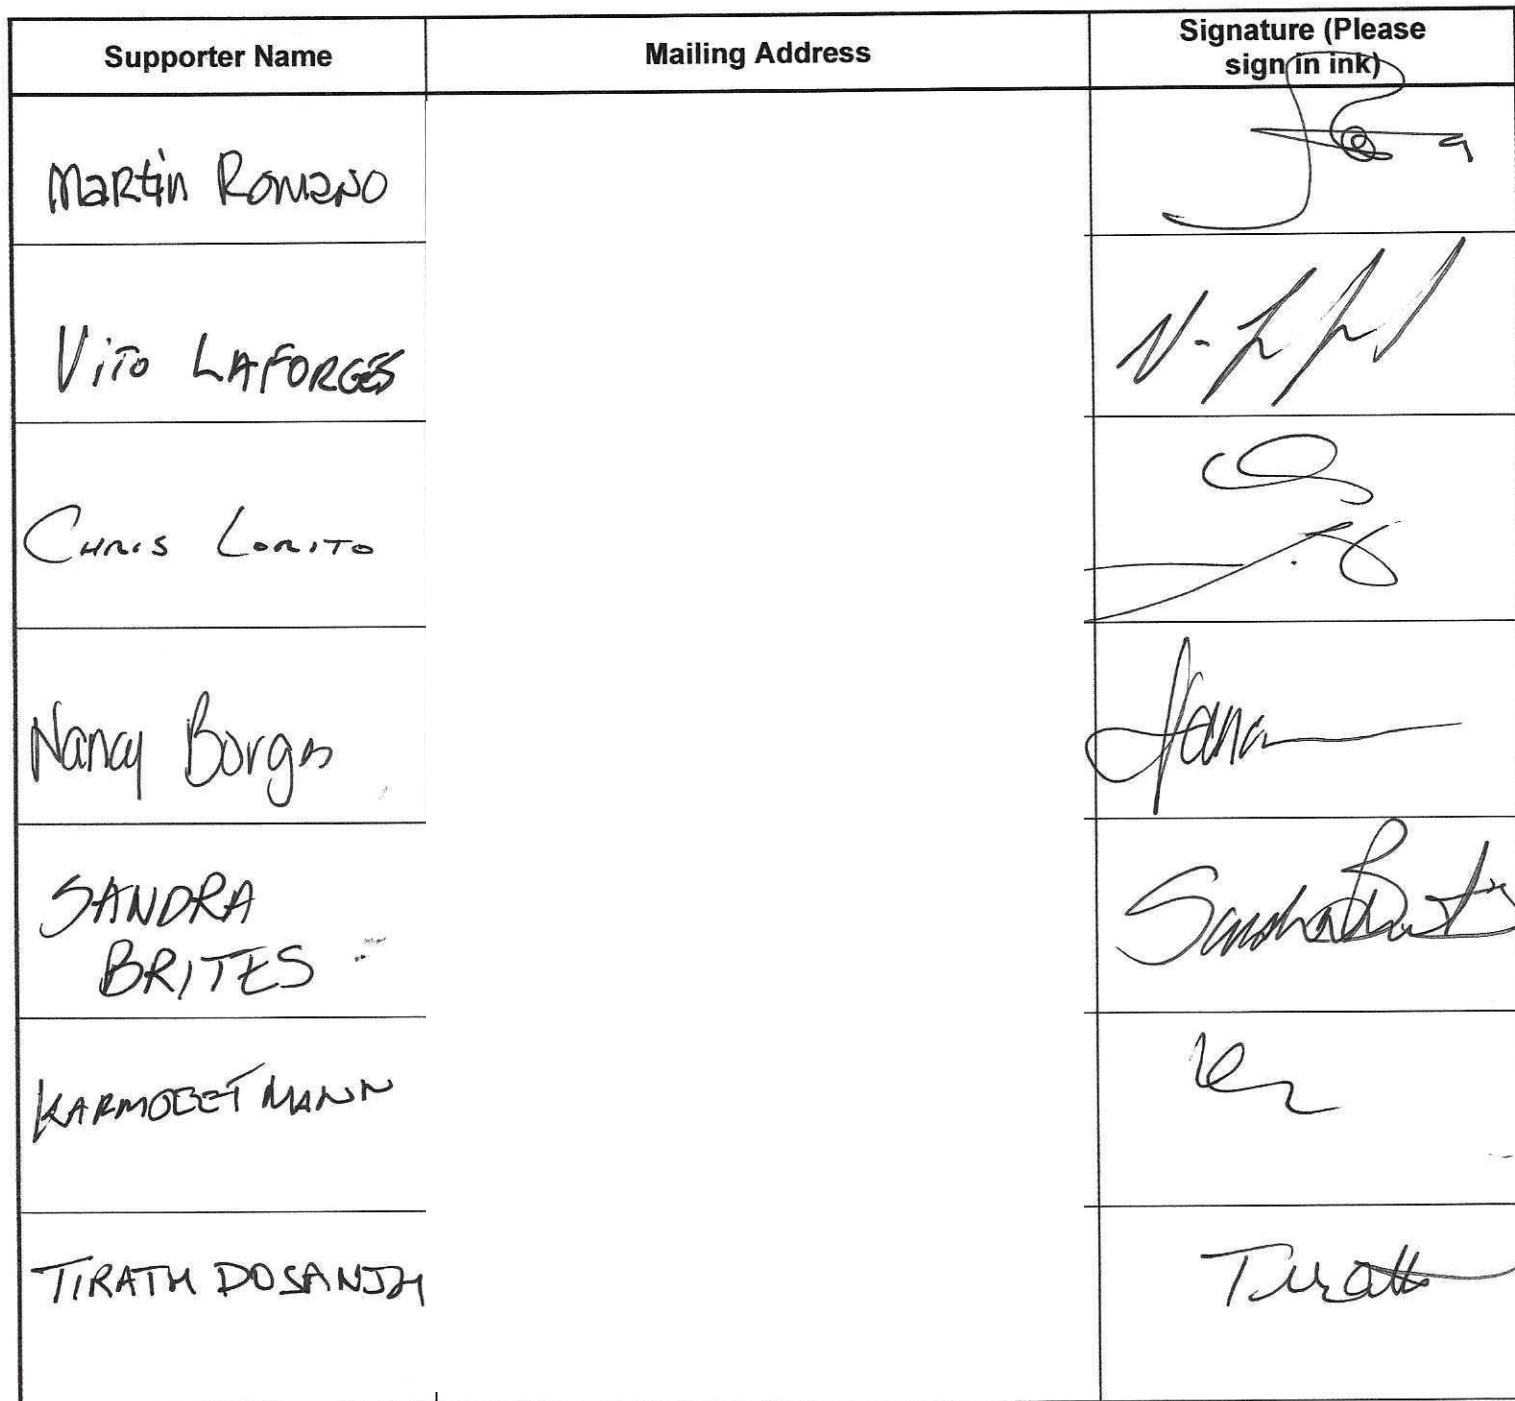 Supporter Name
Mailing Address
Signature (Please
sign in ink)
Martin Romano
Vito LAFORGES
CHRIS LORITO
Nancy Borges
SANDRA
BRITES
Sandra Brites
KARMOEET MANN
TIRATH DOSANJH
Tirath